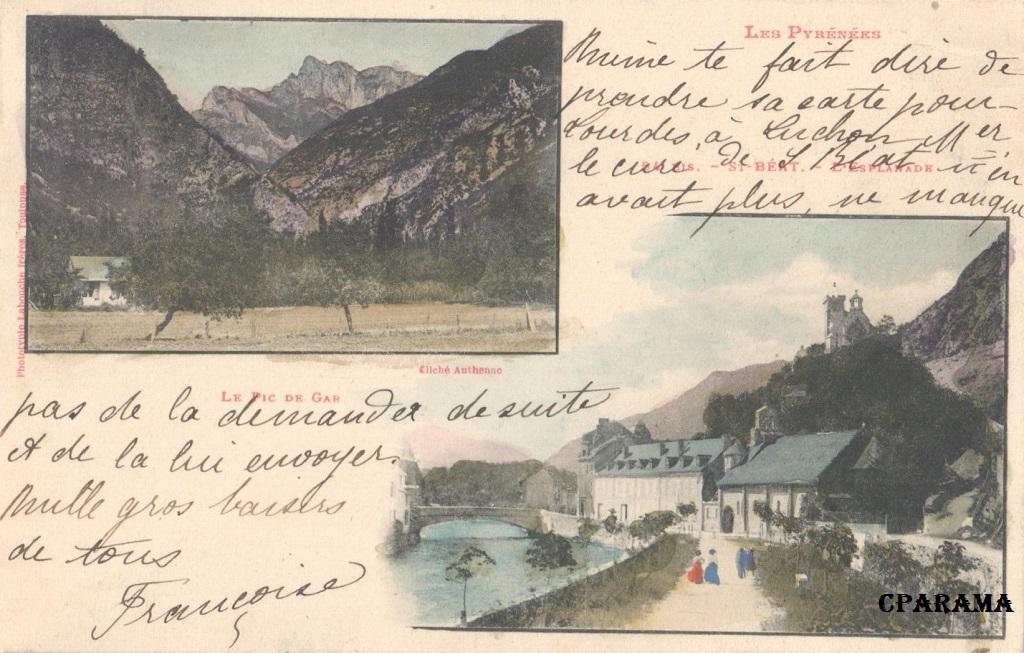 LES PYRÉNÉES
Mimi te fait dire de
prendre sa carte pour
Lourdes, à Luchon Mer
le curé de St Béat n'en
BIS. - ST-BÉAT. - L'ESPLANADE
avait plus, ne manque
Phototypie Labouche frères, Toulouse
Cliché Authenac
LE PIC DE GAR
pas de la demander de suite
et de la lui envoyer.
Mille gros baisers
de tous
Françoise
CPARAMA